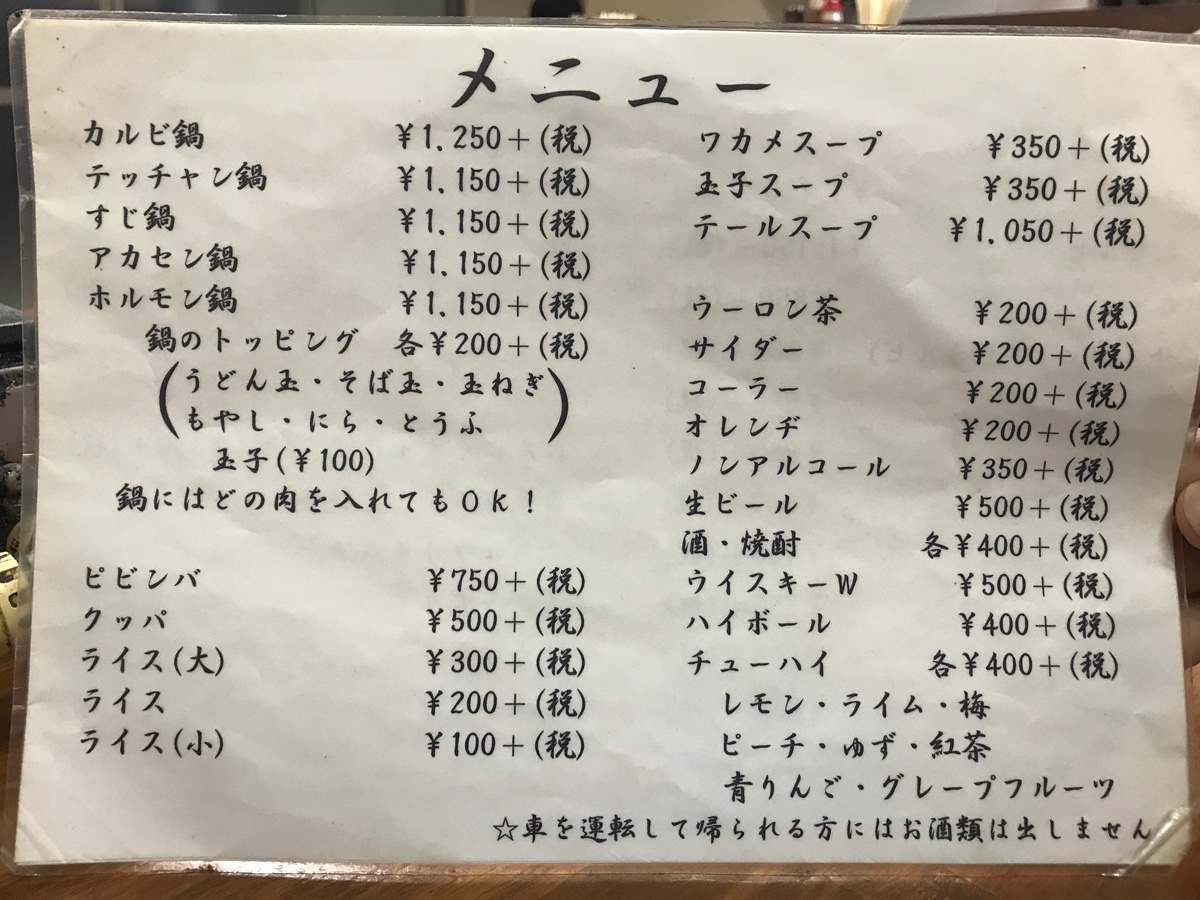 メニュー
カルビ鍋 ¥1,250+(税)
テッチャン鍋 ¥1,150+(税)
すじ鍋 ¥1,150+(税)
アカセン鍋 ¥1,150+(税)
ホルモン鍋 ¥1,150+(税)
鍋のトッピング 各¥200+(税)
(うどん玉・そば玉・玉ねぎ
もやし・にら・とうふ)
玉子(¥100)
鍋にはどの肉を入れてもOK!
ピビンバ ¥750+(税)
クッパ ¥500+(税)
ライス(大) ¥300+(税)
ライス ¥200+(税)
ライス(小) ¥100+(税)
ワカメスープ ¥350+(税)
玉子スープ ¥350+(税)
テールスープ ¥1,050+(税)
ウーロン茶 ¥200+(税)
サイダー ¥200+(税)
コーラー ¥200+(税)
オレンヂ ¥200+(税)
ノンアルコール ¥350+(税)
生ビール ¥500+(税)
酒・焼酎 各¥400+(税)
ウイスキーW ¥500+(税)
ハイボール ¥400+(税)
チューハイ 各¥400+(税)
レモン・ライム・梅
ピーチ・ゆず・紅茶
青りんご・グレープフルーツ
☆車を運転して帰られる方にはお酒類は出しません